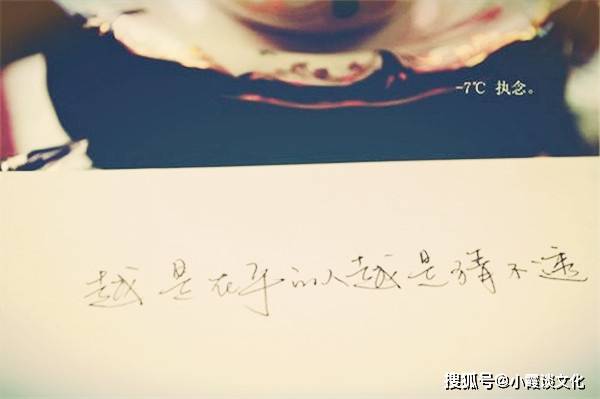 -7℃ 执念。
越是在乎的人越是猜不透
搜狐号@小霞谈文化